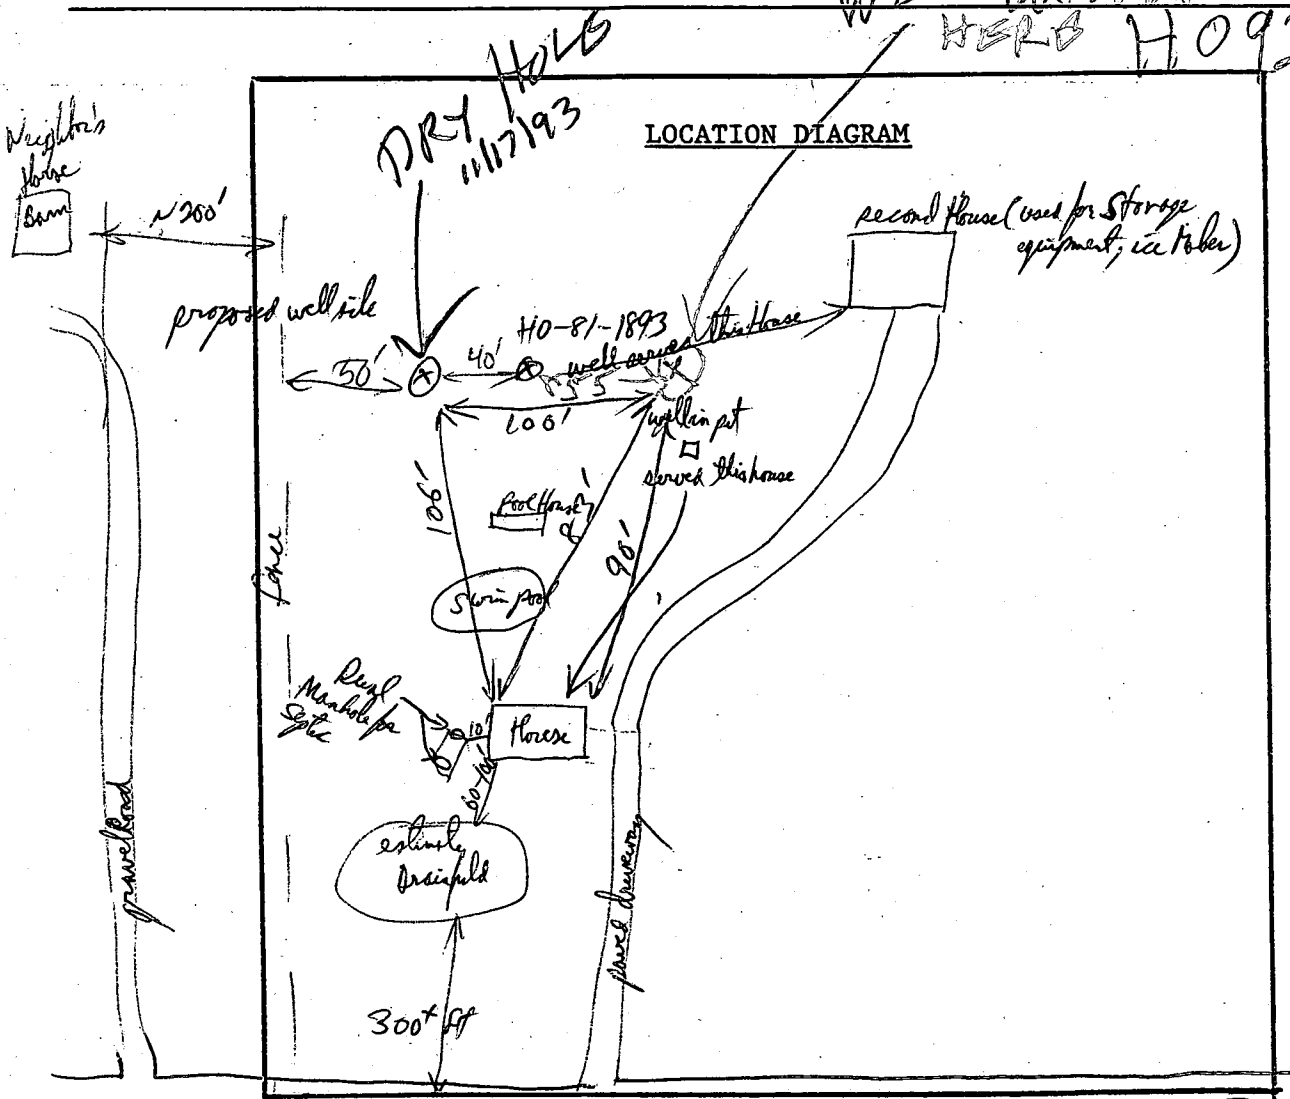 HERE
HO93
DRY HOLE
11/17/93
LOCATION DIAGRAM
Neighbor's
House
Barn
~200'
second House (used for storage
equipment, ice
proposed well site
HO-81-1893
well serves this House
50'
40'
100'
well in pit
served this house
106'
Pool House
90'
fence
Swim pool
Manhole for
Septic
10'
House
60-100'
estimate
Drainfield
gravel Road
paved driveway
300+ ft